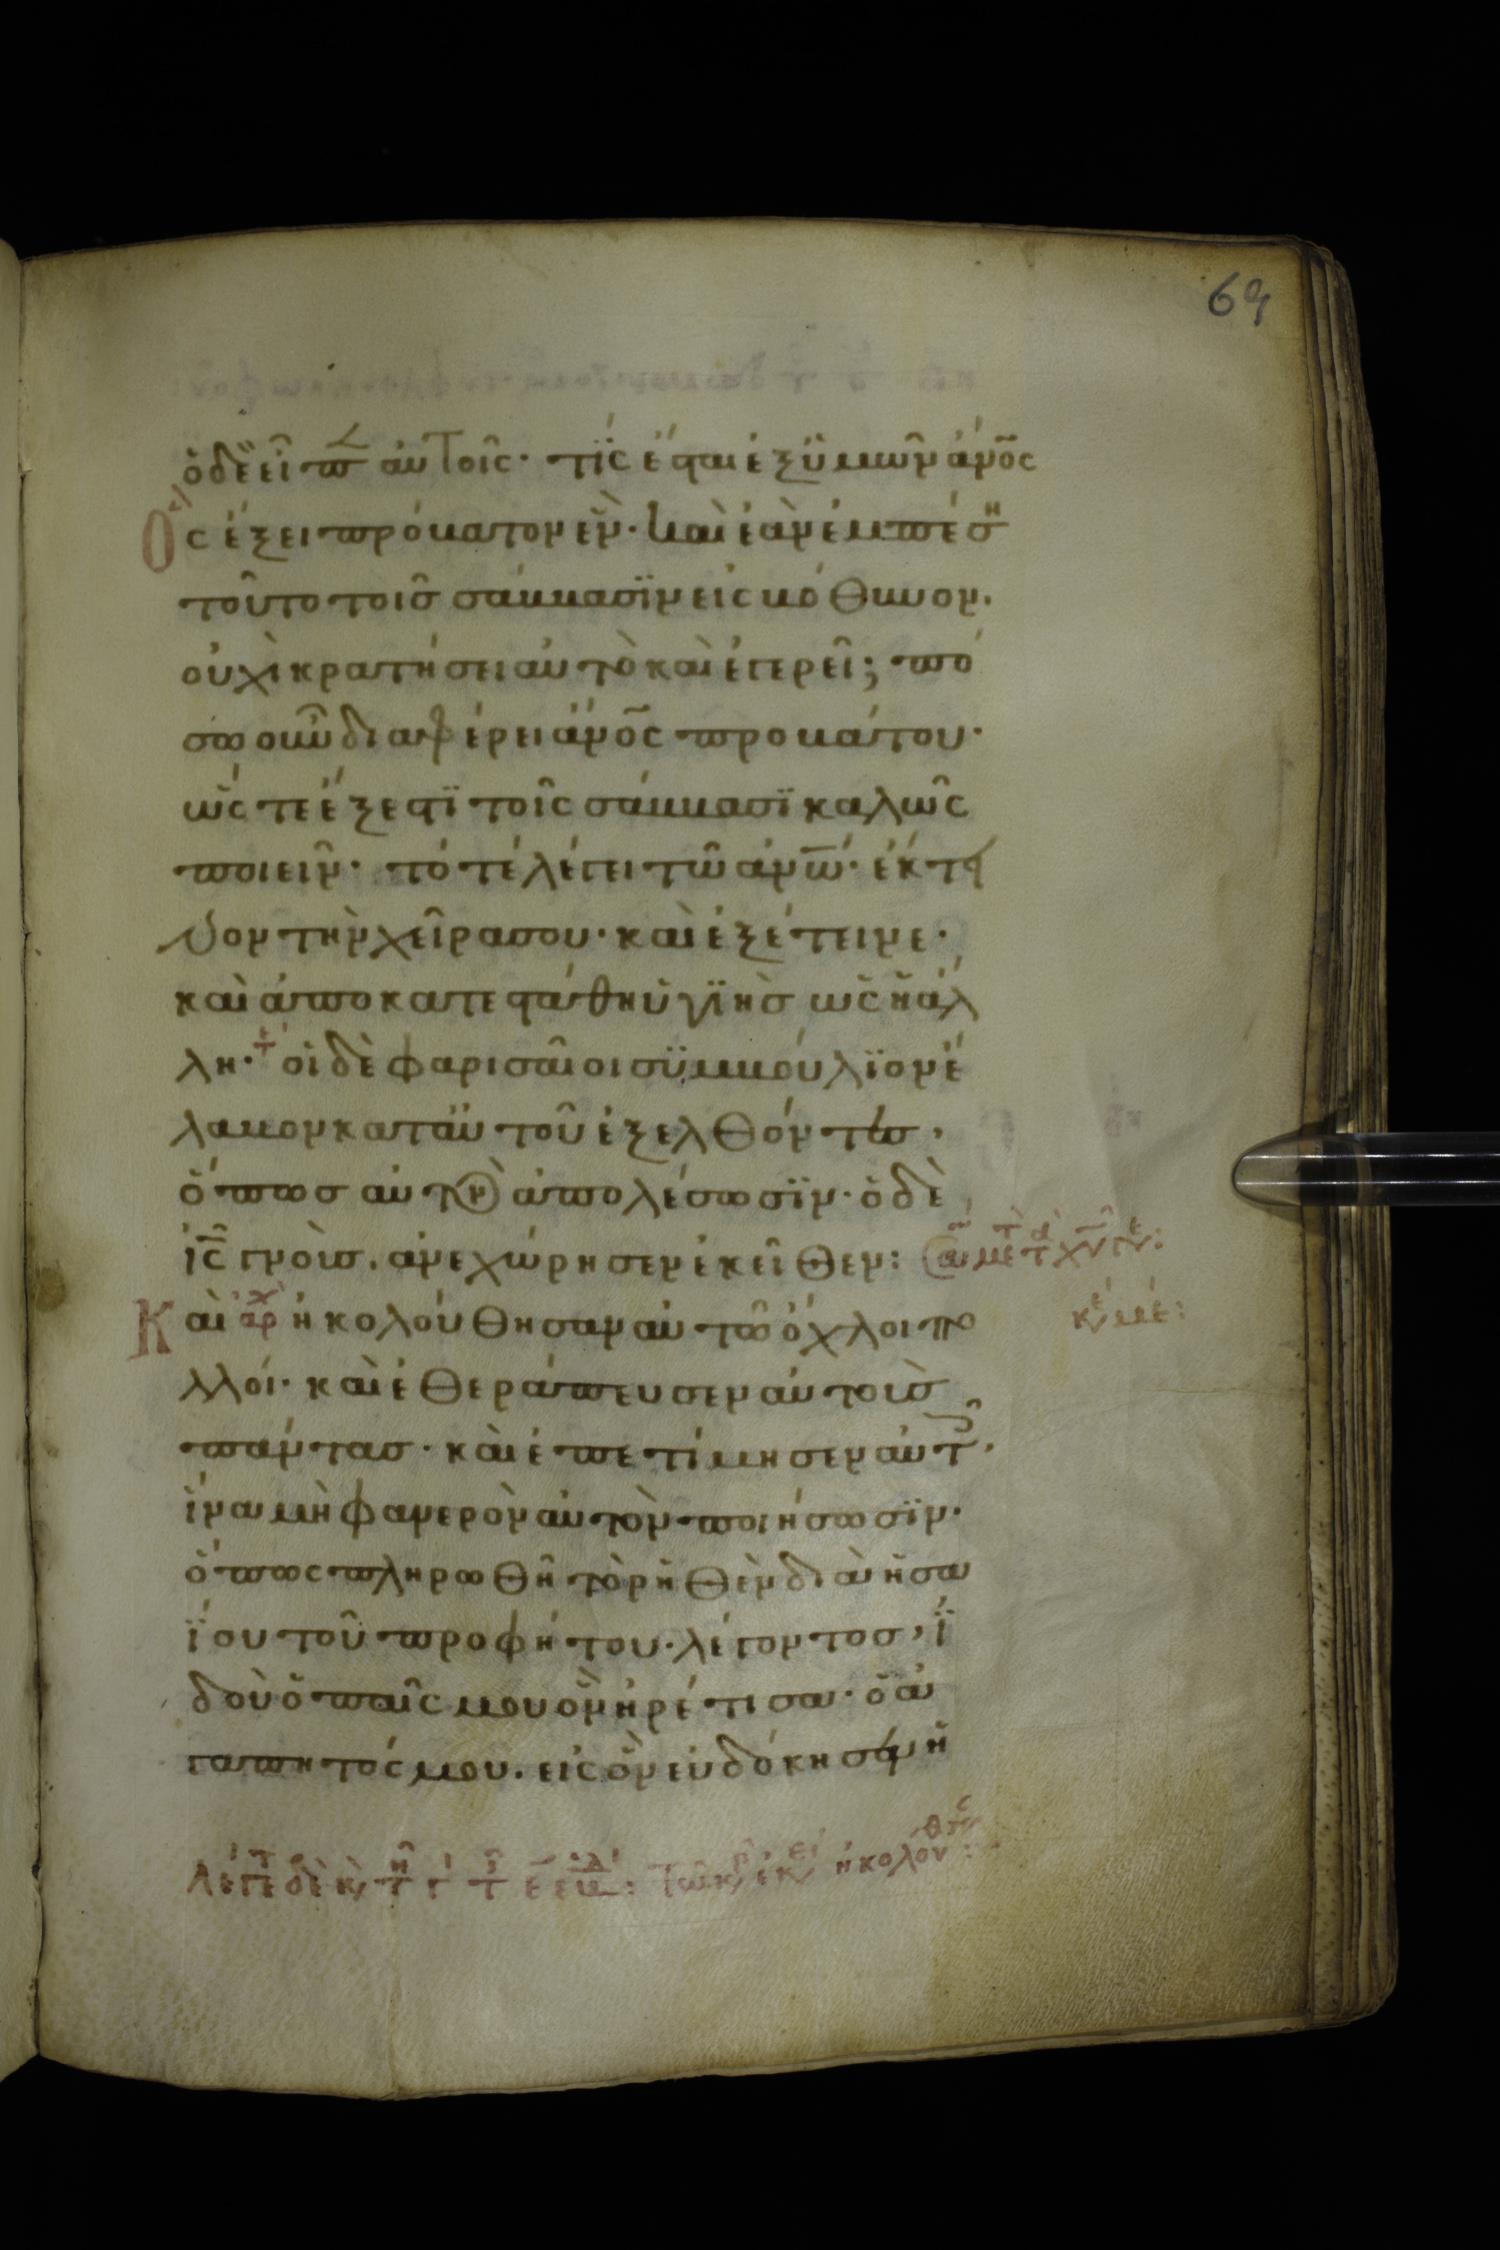 69
ὁ δὲ εἶπ αὐτοῖς· τίς ἔσται ἐξ ὑμῶν ἀνος
ς ἕξει πρόβατον ἕν· καὶ ἐὰν ἐμπέση
τοῦτο τοῖς σάββασϊν εἰς βόθυνον.
οὐχὶ κρατήσει αὐτὸ καὶ ἐγερεῖ; πό
σω οὖν διαφέρει ἄνος προβάτου·
ὥςτε ἔξεστϊ τοῖς σάββασϊ καλῶς
ποιεῖν· τότε λέγει τῶ ἀνω· ἔκτει
νον τὴν χεῖρα σου· καὶ ἐξέτεινε·
καὶ ἀποκατεστάθη ὑγϊὴς ὡς ἡ ἄλ
λη· οἱ δὲ φαρισαῖοι συμβούλϊον ἔ
λαβον κατ αὐτοῦ ἐξελθόντες,
ὅπως αὐτὸν ἀπολέσωσϊν· ὁ δὲ
ις γνοὺς. ἀνεχώρησεν ἐκεῖθεν:
Και ἀρχ ἠκολούθησαν αὐτῶ ὄχλοι πο
λλοί· καὶ ἐθεράπευσεν αὐτοὺς
πάντας· καὶ ἐπετίμησεν αὐτοῖς,
ἵνα μὴ φανερὸν αὐτὸν ποιήσωσϊν·
ὅπως πληρωθῆ τὸ ῥηθὲν διὰ ἡσα
ΐου τοῦ προφήτου· λέγοντος, ϊ
δοὺ ὁ παῖς μου ὃν ἡρέτισα· ὁ ἀ
γαπητός μου. εἰς ὃν εὐδόκησεν ἡ